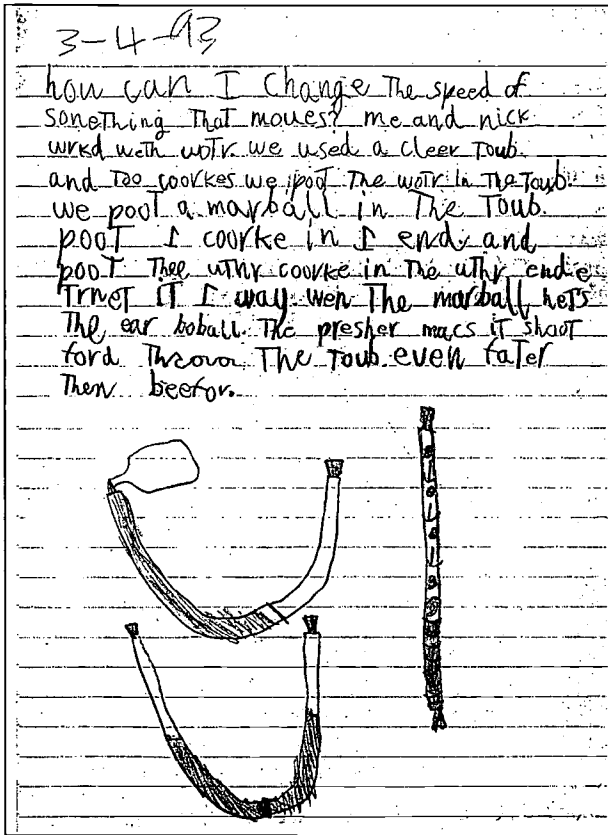 3-4-93
how can I change The speed of
something That moves? me and nick
wrkd weth wotr. we used a cleer Toub.
and Too coorkes we poot The wotr in The Toub.
we pooT a marball in The Toub.
pooT 1 coorke in 1 end. and
pooT Thee uthr coorke in The uthr end e
Trnet iT 1 way wen The marball hets
The ear boball. The presher macs iT shooT
ford Throo The Toub. even faTer
Then beefor.